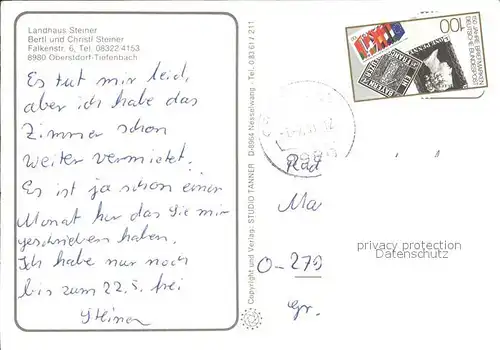 Landhaus Steiner
Bertl und Christl Steiner
Falkenstr. 6, Tel. 08322-4153
8980 Oberstdorf-Tiefenbach
Es tut mir leid,
aber ich habe das
Zimmer schon
weiter vermietet.
Es ist ja schon einen
Monat her das Sie mir
geschrieben haben.
Ich habe nur noch
bis zum 22.5. frei
Steiner
Copyright und Verlag: STUDIO TANNER D-8964 Nesselwang - Tel. 0 83 61 / 2 11
100
150 JAHRE BRIEFMARKEN
DEUTSCHE BUNDESPOST
Rad
Ma
O-270
Gr.
privacy protection
Datenschutz